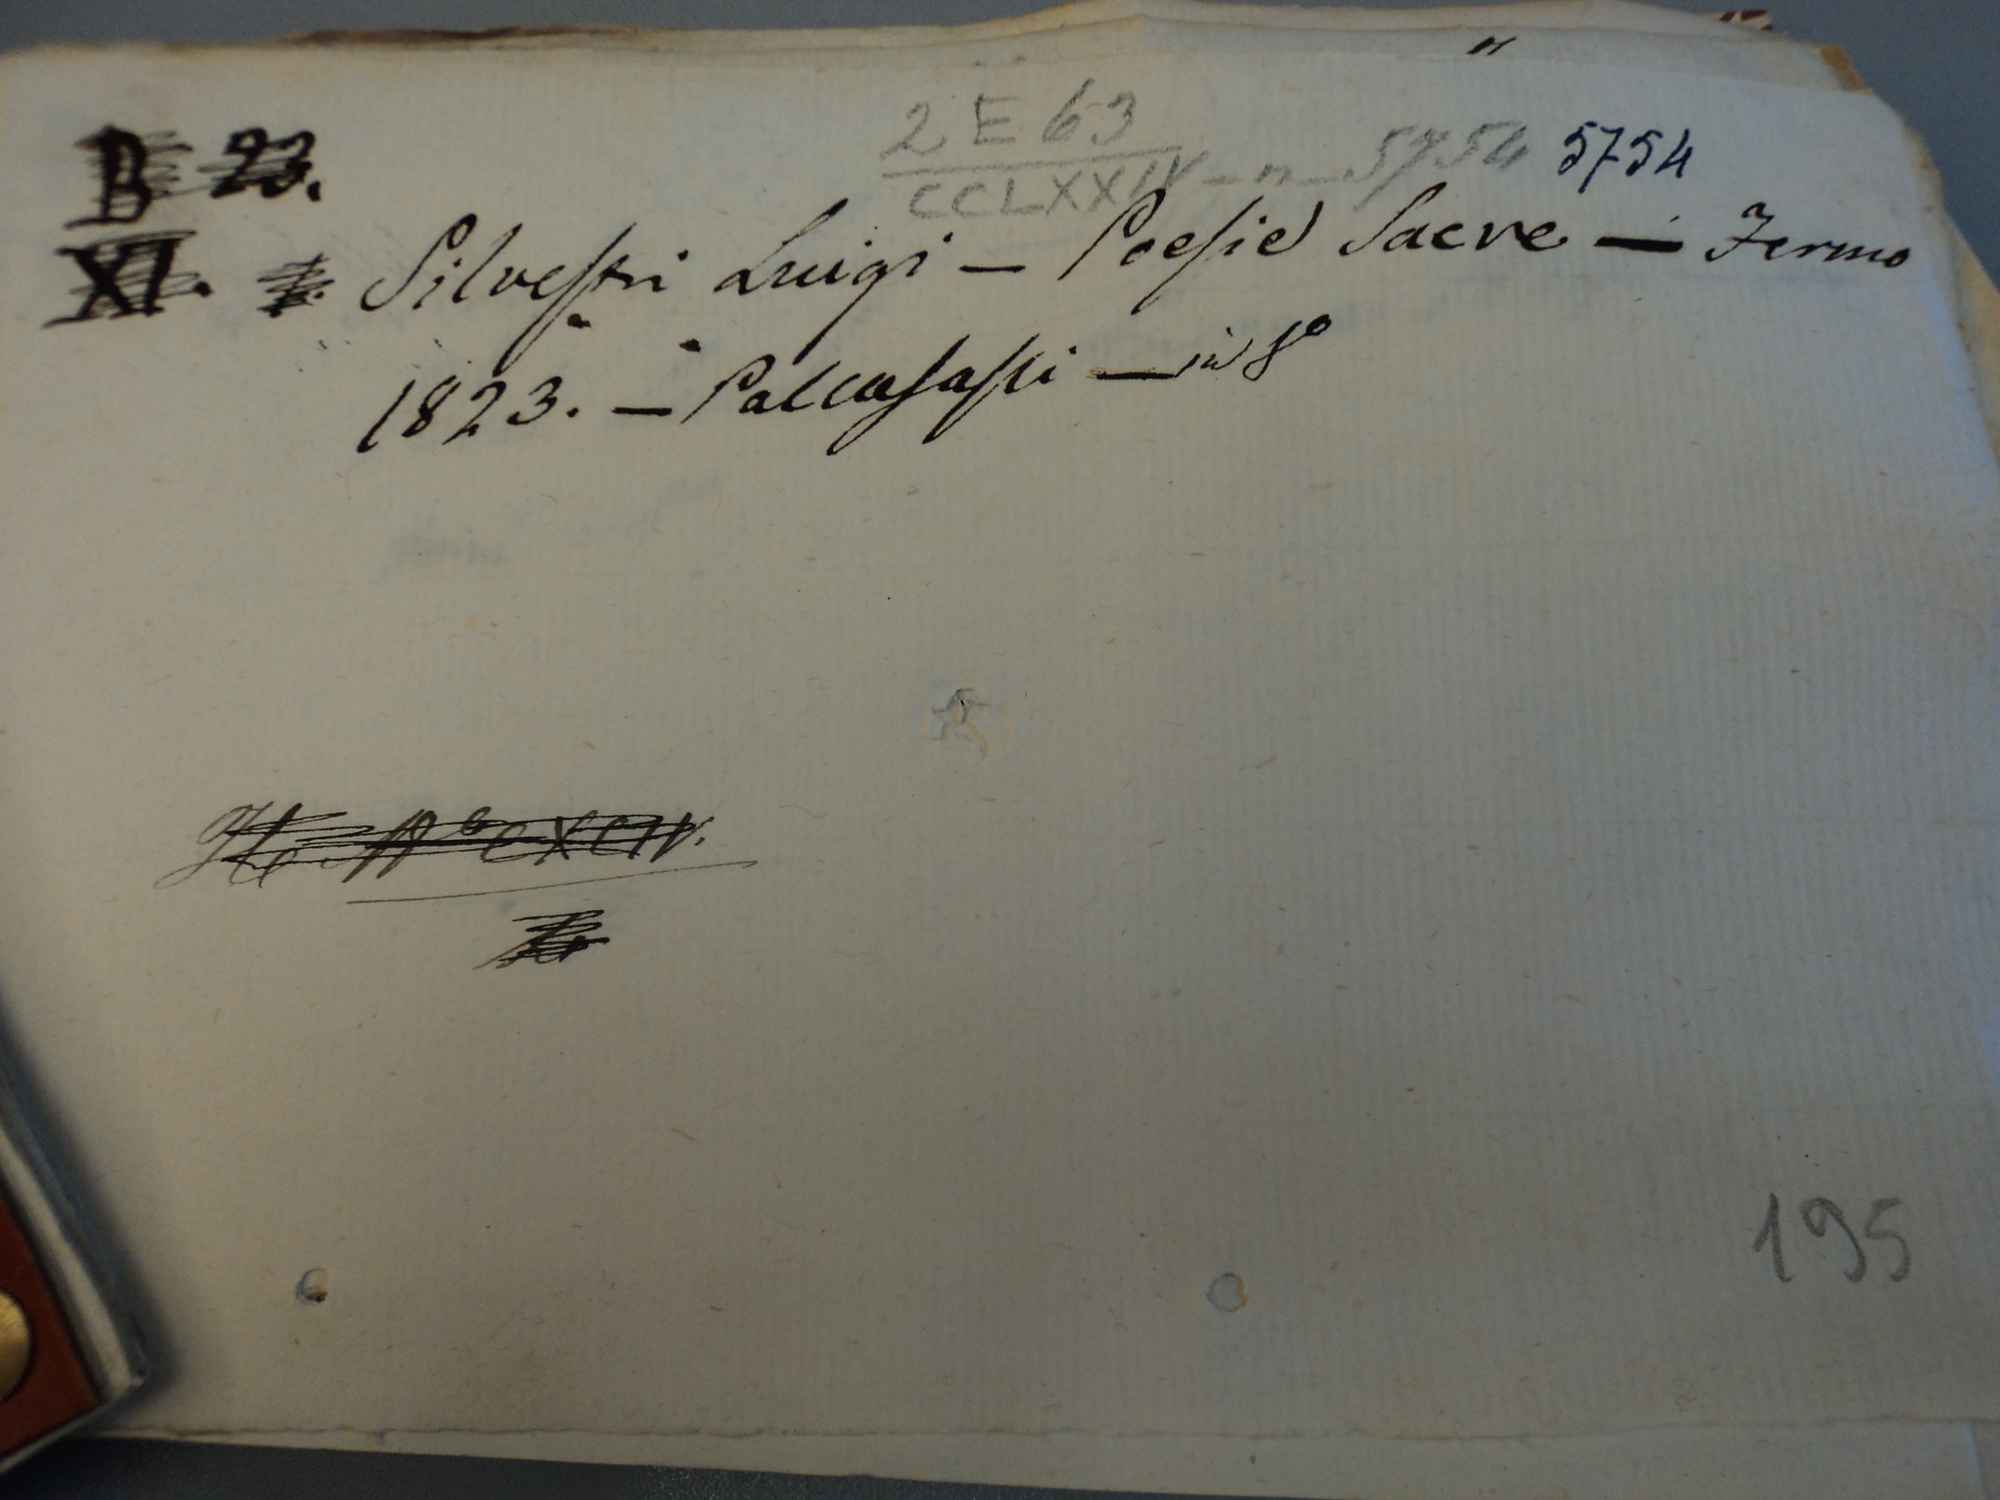 2 E 63
B 23. CCLXXIV - n - 5754 5754
XI. Silvestri Luigi - Poesie Sacre - Fermo
1823. - Paccasassi - in 8°
CXCIV.
195